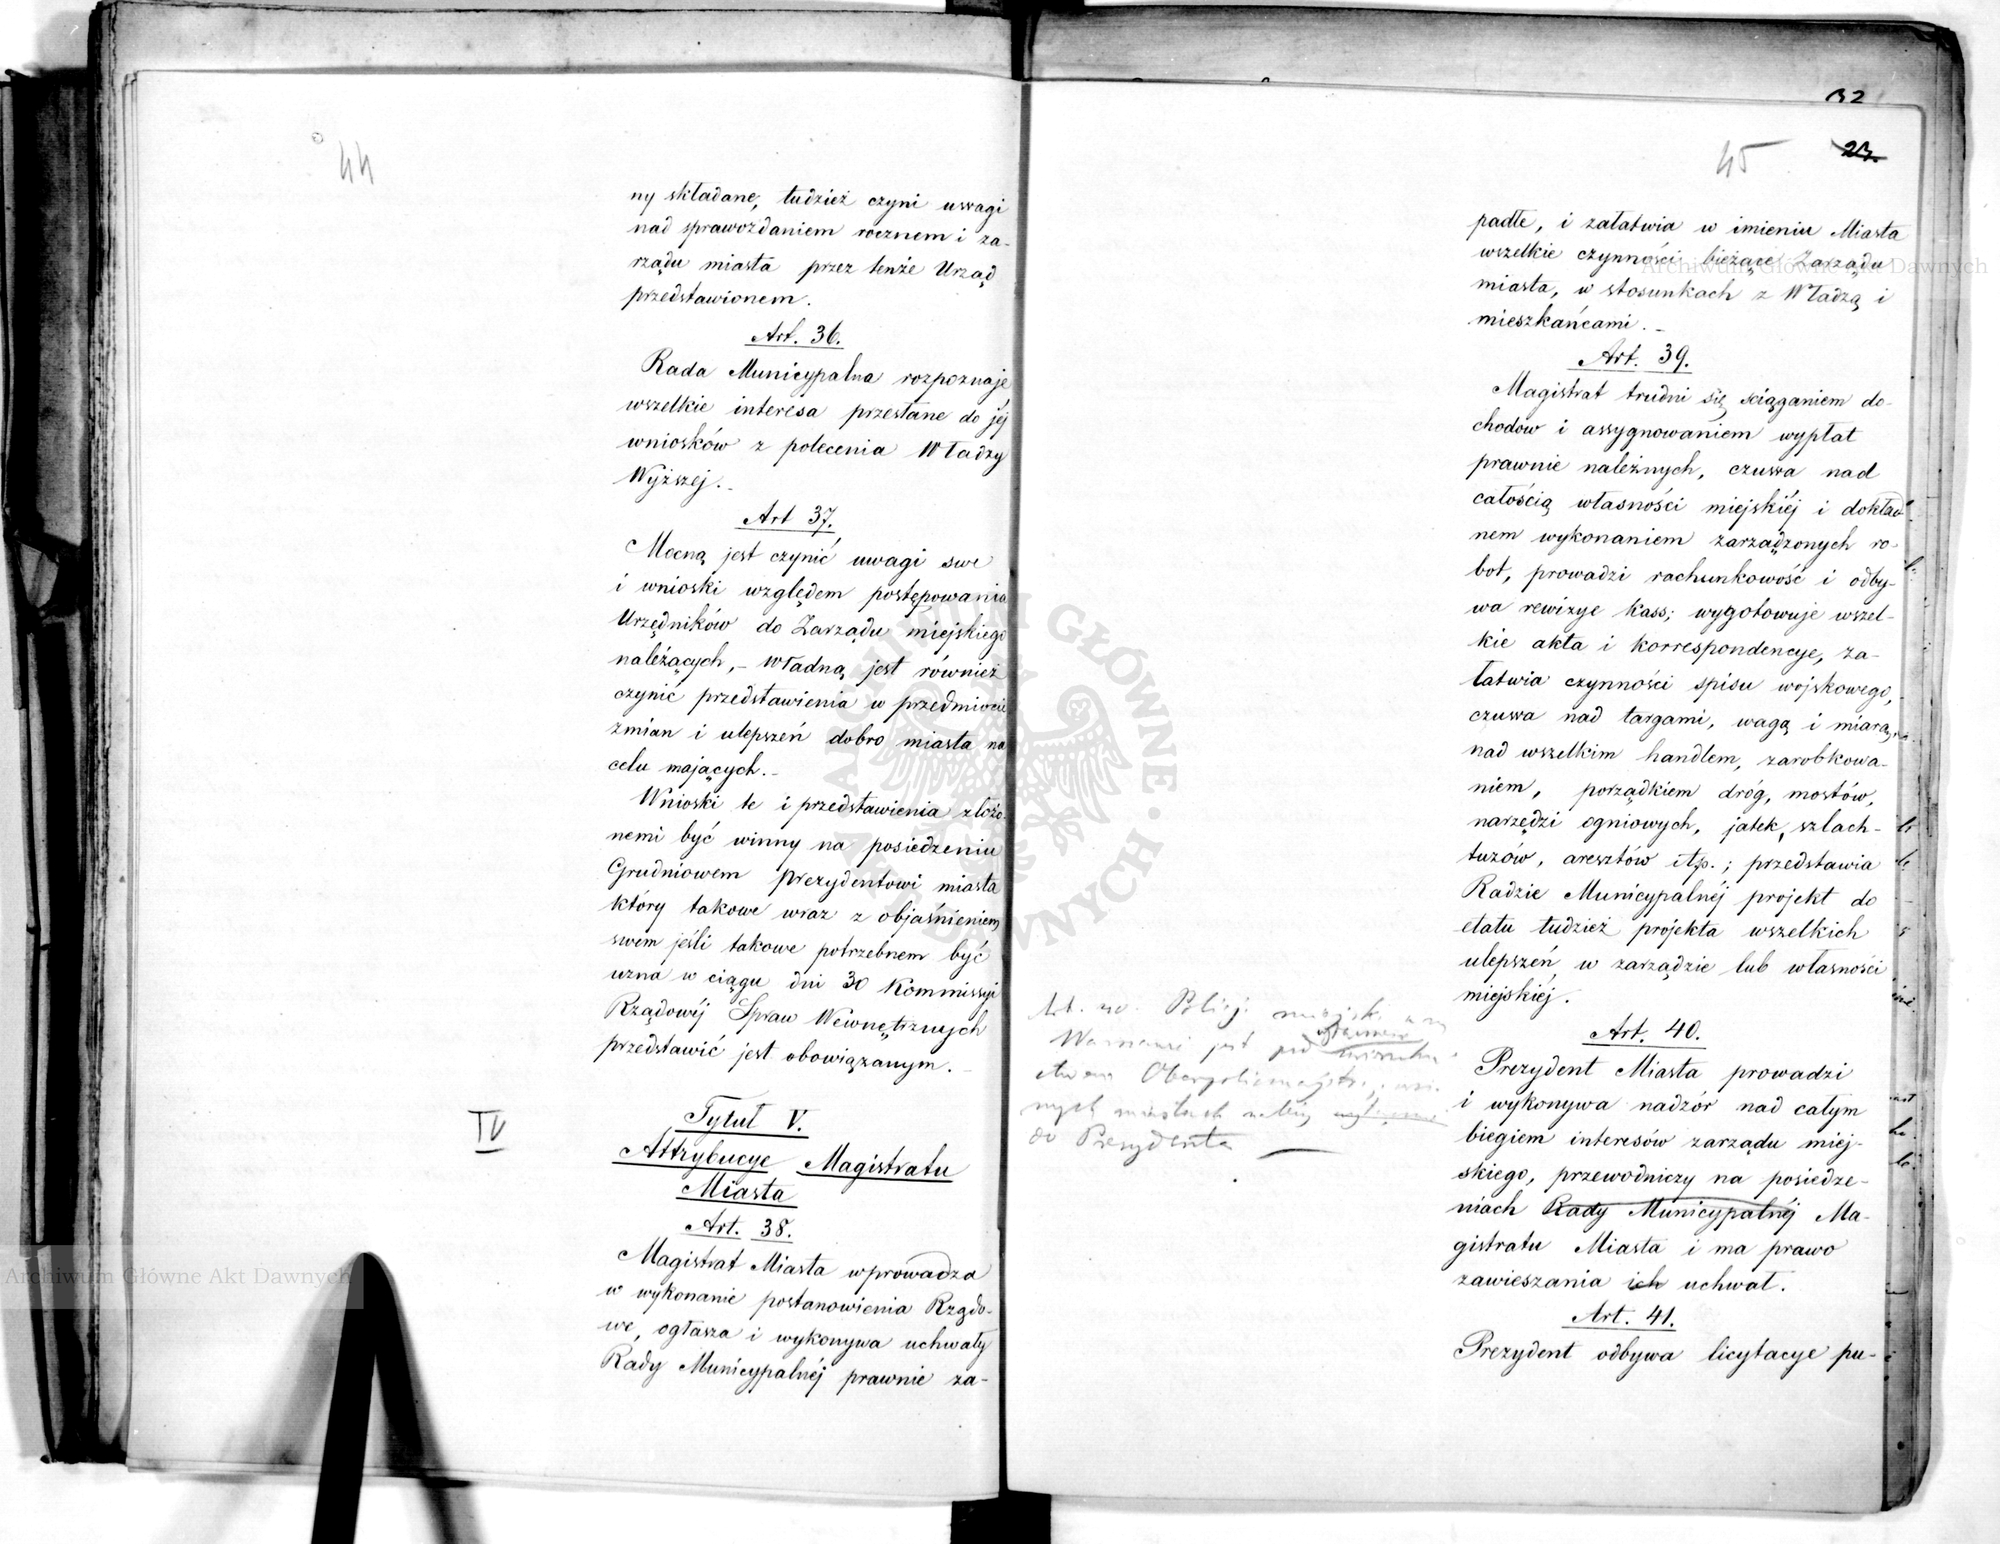 44
ny składane, tudzież czyni uwagi
nad sprawozdaniem rocznem i za-
rządu miasta przez tenże Urząd
przedstawionem.
Art. 36.
Rada Municypalna rozpoznaje
wszelkie interesa przesłane do jéj
wniosków z polecenia Władzy
Wyższej.
Art 37.
Mocną jest czynić uwagi swe
i wnioski względem postępowania
Urzędników do Zarządu miejskiego
należących, – władną jest również
czynić przedstawienia w przedmiocie
zmian i ulepszeń dobro miasta na
celu mających. –
Wnioski te i przedstawienia złożo-
nemi być winny na posiedzeniu
Grudniowem prezydentowi miasta
który takowe wraz z objaśnieniem
swem jeśli takowe potrzebnem być
uzna w ciągu dni 30 Kommissyi
Rządowéj Spraw Wewnętrznych
przedstawić jest obowiązanym. –
IV
Tytuł V.
Attrybucye Magistratu
Miasta
Art. 38.
Magistrat Miasta wprowadza
w wykonanie postanowienia Rzędo-
we, ogłasza i wykonywa uchwały
Rady Municypalnéj prawnie za-
32
45
23.
padłe, i załatwia w imieniu Miasta
wszelkie czynności bieżące Zarządu
miasta, w stosunkach z Władzą i
mieszkańcami. –
Art. 39.
Magistrat trudni się ściąganiem do-
chodów i assygnowaniem wypłat
prawnie należnych, czuwa nad
całością własności miejskiéj i dokład-
nem wykonaniem zarządzonych ro-
bot, prowadzi rachunkowość i odby-
wa rewizye kass; wygotowuje wszel-
kie akta i korrespondencye, za-
łatwia czynności spisu wojskowego,
czuwa nad targami, wagą i miarą,
nad wszelkim handlem, zarobkowa-
niem, porządkiem dróg, mostów,
narzędzi ogniowych, jatek, szlach-
tuzów, aresztów itp.; przedstawia
Radzie Municypalnéj projekt do
etatu tudzież projekta wszelkich
ulepszeń w zarządzie lub własności
miejskiéj.
Art. 40.
Prezydent Miasta prowadzi
i wykonywa nadzór nad całym
biegiem interesów zarządu miej-
skiego, przewodniczy na posiedze-
niach Rady Municypalnéj Ma-
gistratu Miasta i ma prawo
zawieszania ich uchwał.
Art. 41.
Prezydent odbywa licytacye pu-
Warszawie jest pod
Oberpolicmajstra,
nych miastach należy
do Prezydenta
Archiwum Główne Akt Dawnych
Archiwum Główne Akt Dawnych
ARCHIWUM GŁÓWNE AKT DAWNYCH